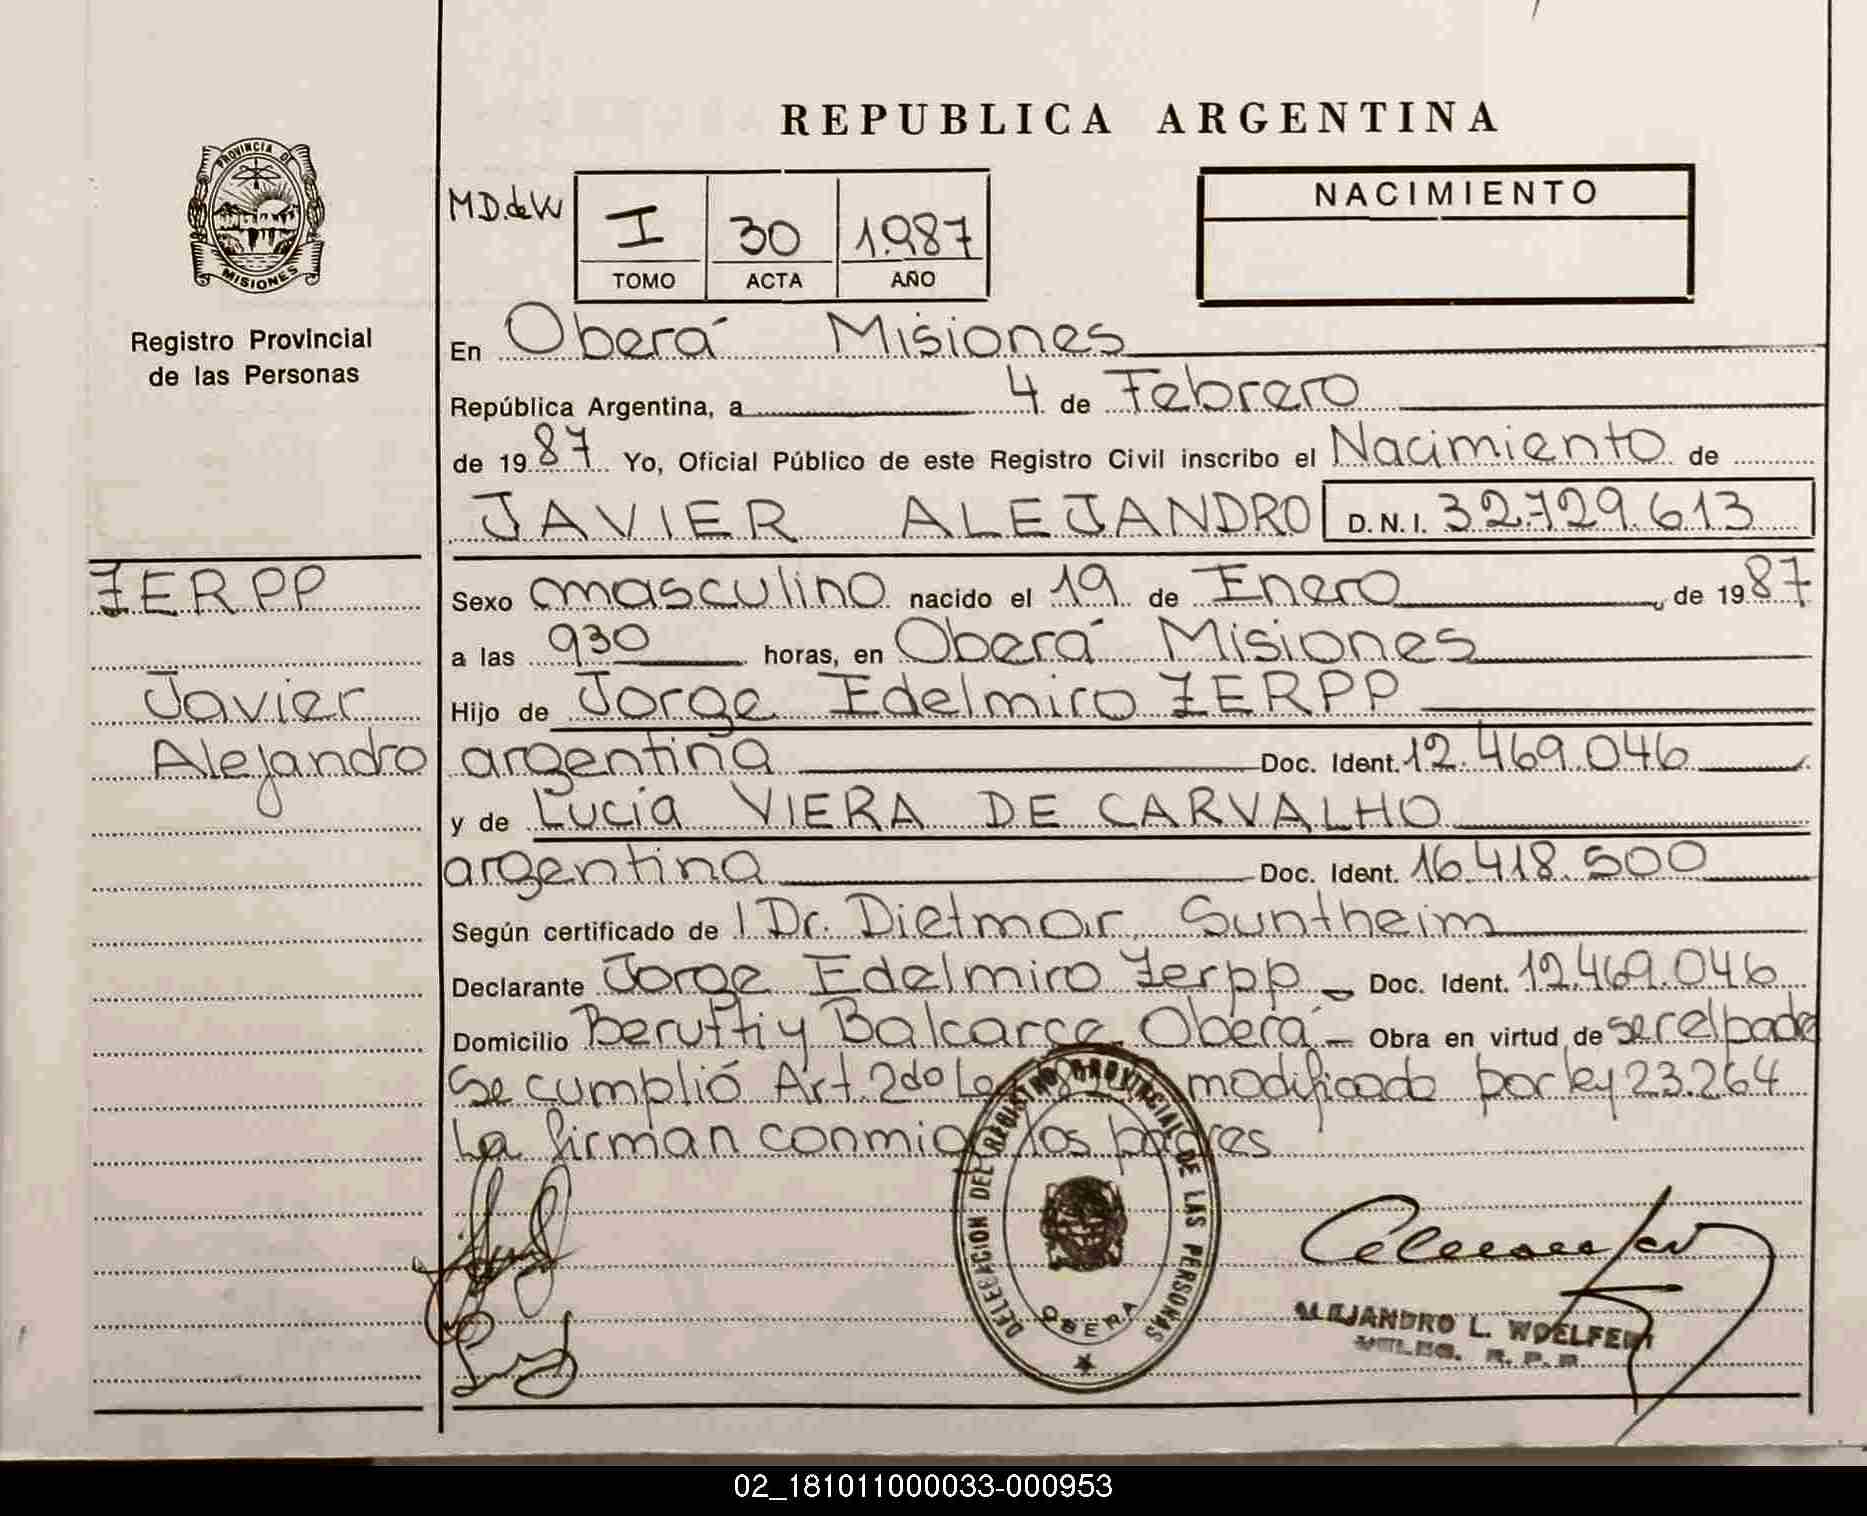 REPUBLICA ARGENTINA
PROVINCIA DE
MISIONES
Registro Provincial
de las Personas
M.D. de W
I 30 1.987
TOMO ACTA AÑO
NACIMIENTO
En Oberá Misiones
República Argentina, a 4 de Febrero
de 1987 Yo, Oficial Público de este Registro Civil inscribo el Nacimiento de
JAVIER ALEJANDRO D.N.I. 32.729.613
ZERPP
Javier
Alejandro
Sexo masculino nacido el 19 de Enero, de 1987
a las 930 horas, en Oberá Misiones
Hijo de Jorge Edelmiro ZERPP
argentina Doc. Ident. 12.469.046
y de Lucia VIERA DE CARVALHO
argentina Doc. Ident. 16.418.500
Según certificado de Dr. Dietmar Suntheim
Declarante Jorge Edelmiro Zerpp Doc. Ident. 12.469.046
Domicilio Berutti y Balcarce Oberá Obra en virtud de ser el padre
Se cumplió Art. 2do modificado por ley 23.264
La firman conmigo los padres
DELEGACION DEL REGISTRO PROVINCIAL DE LAS PERSONAS
OBERA
ALEJANDRO L. WOELFERT
R. P. P.
02_181011000033-000953